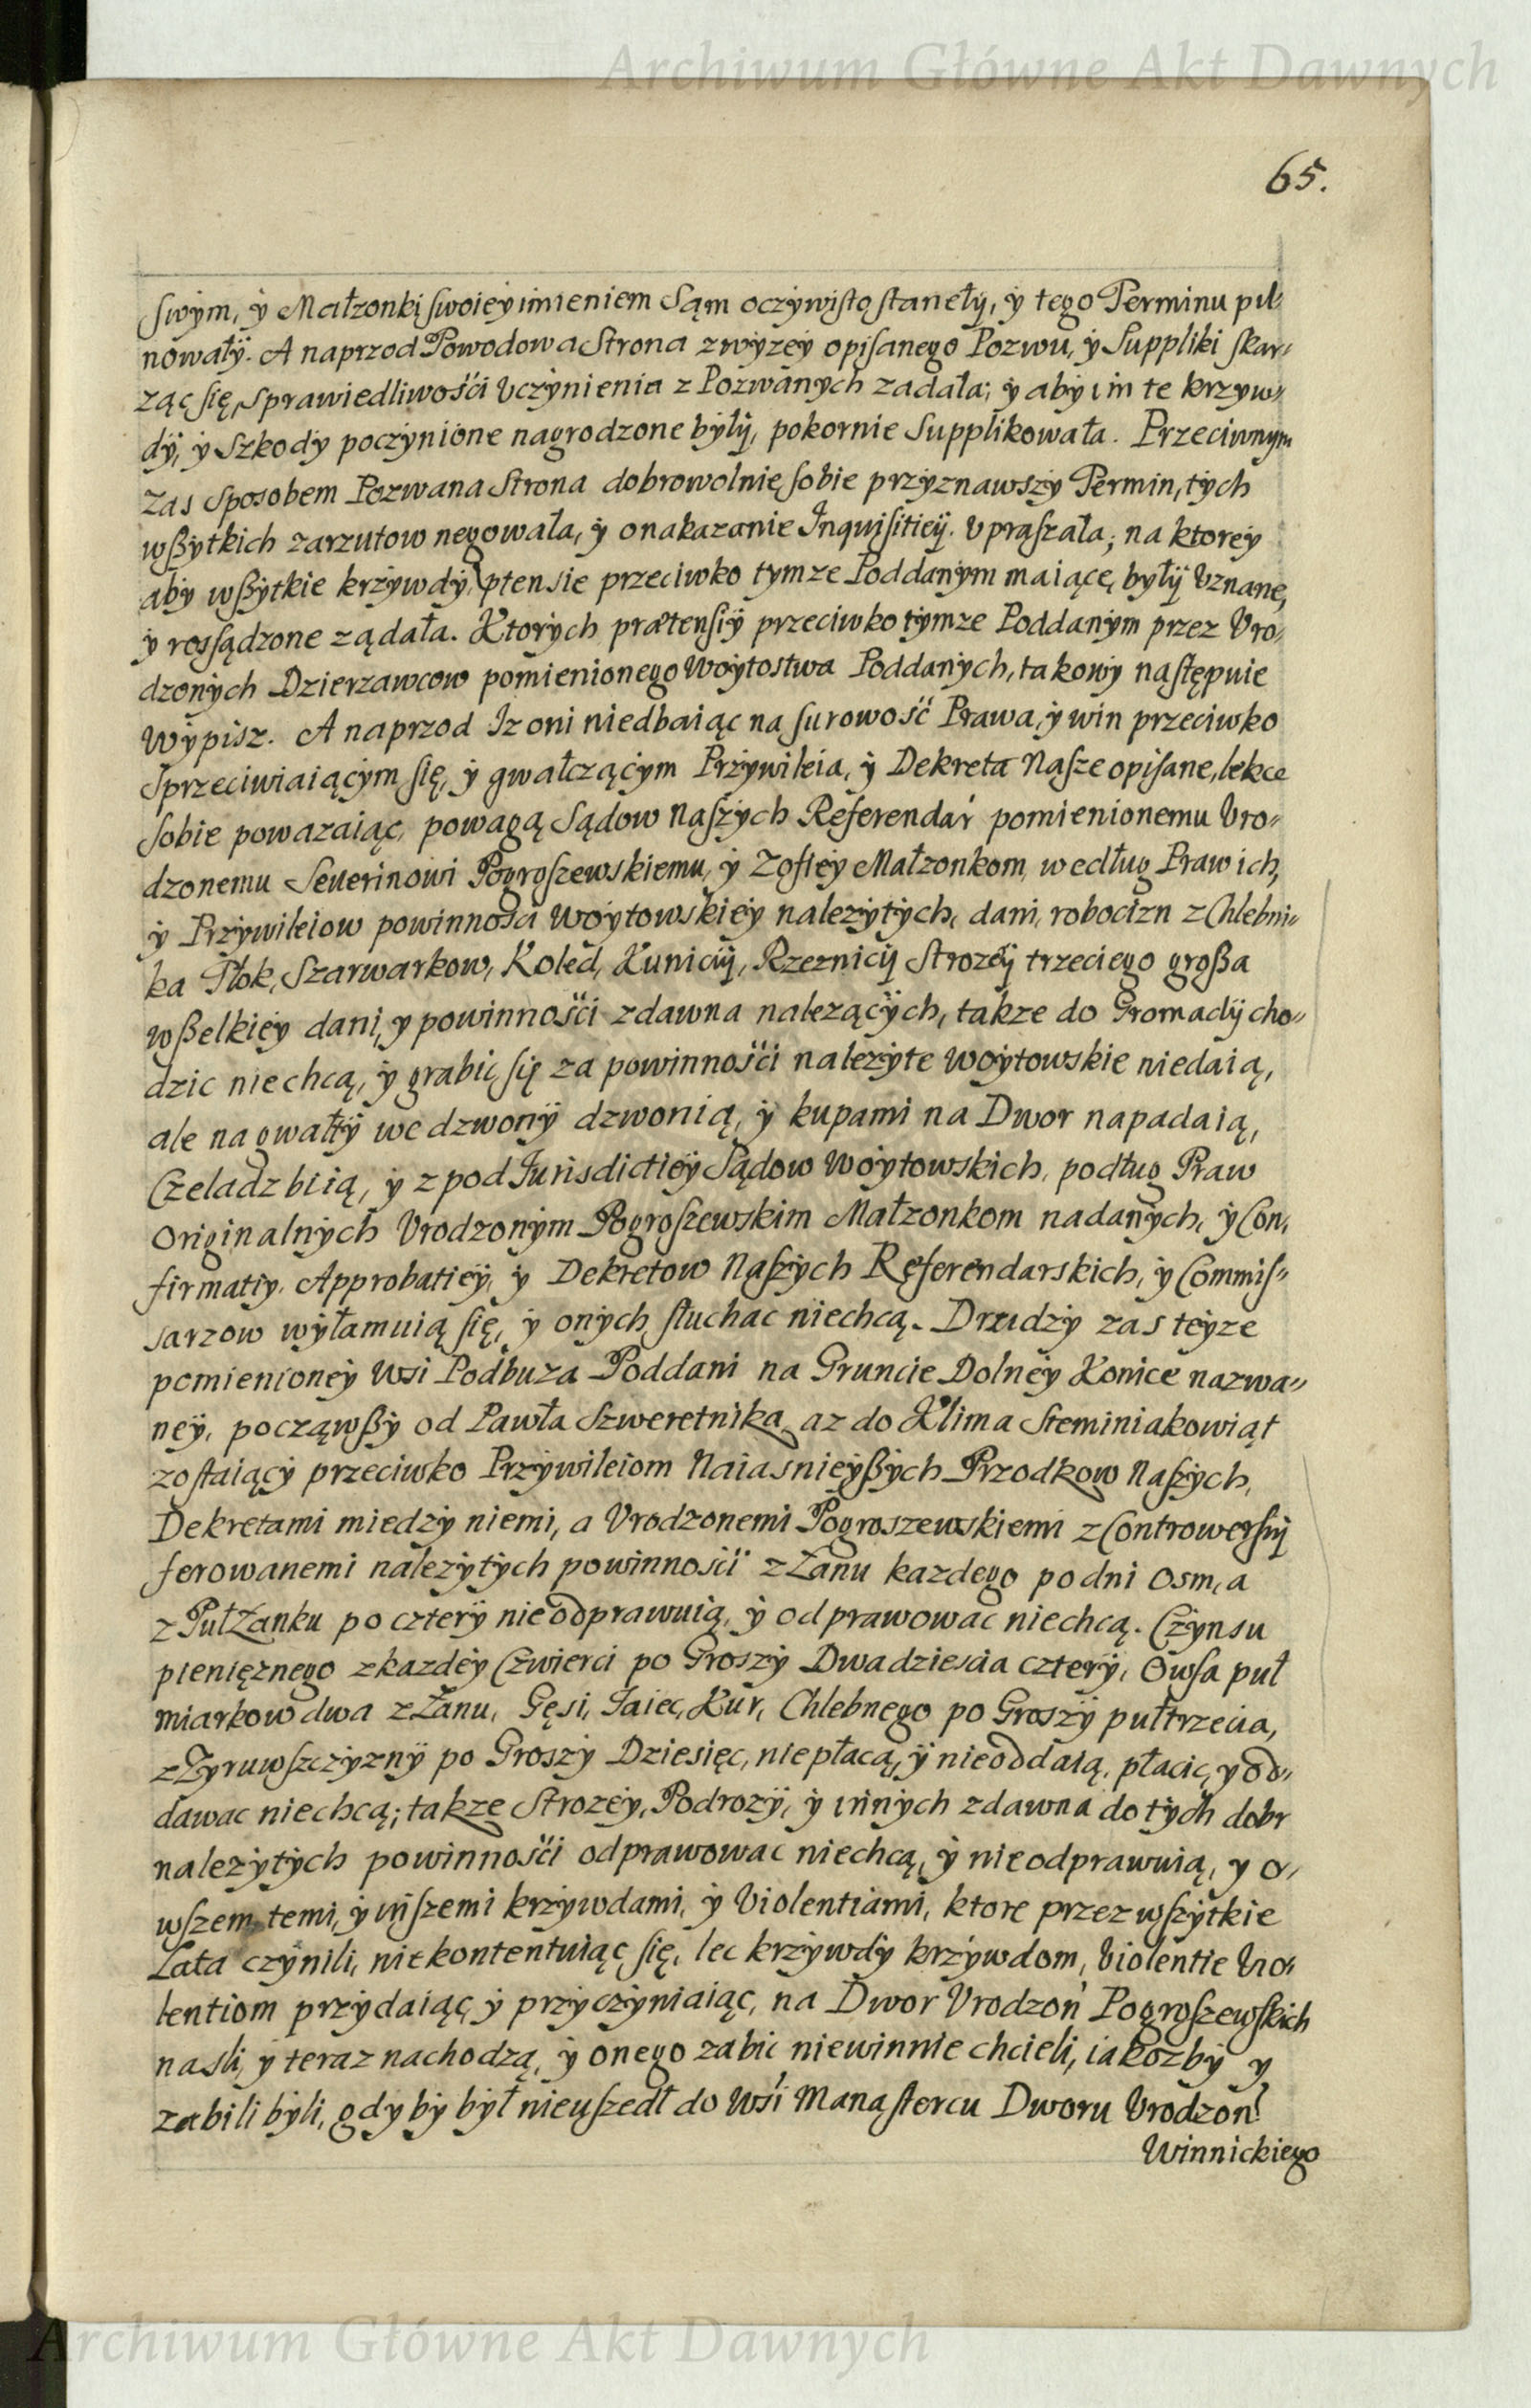 Archiwum Główne Akt Dawnych
65.
swym, ÿ Małzonki swoieÿ imieniem Sąm oczÿwisto stanełÿ, ÿ tego Terminu pil-
nowałÿ. A naprzod Powodowa Strona zwÿzeÿ opisanego Pozwu, ÿ Suppliki skar-
ząc się, Sprawiedliwości Vczÿnienia z Pozwanÿch zadała; ÿ abÿ im te krzÿw-
dÿ, ÿ Szkodÿ poczÿnione nagrodzone bÿłÿ, pokornie Supplikowała. Przeciwnym
zas Sposobem Pozwana Strona dobrowolnie sobie przÿznawszÿ Termin, tÿch
wßÿtkich zarzutow negowała, ÿ o nakazanie Inquisitieÿ. Vpraszała; na ktoreÿ
abÿ wßÿtkie krzÿwdÿ, ptensie przeciwko tÿmze Poddanÿm maiące, bÿłÿ Vznane,
ÿ rossądzone ządała. Ktorÿch prætensiÿ przeciwko tÿmze Poddanÿm przez Vro-
dzonÿch Dzierzawcow pomienionego Woÿtostwa Poddanÿch, takowÿ następuie
Wÿpisz. A naprzod Iz oni niedbaiąc na surowość Prawa, ÿ win przeciwko
Sprzeciwiaiącÿm się, ÿ gwałczącÿm Przÿwileia, ÿ Dekreta Nasze opisane, lekce
sobie powazaiąc, powagą Sądow Naszÿch Referendar pomienionemu Vro-
dzonemu Seuerinowi Pogroszewskiemu, ÿ Zofieÿ Małzonkom, według Praw ich,
ÿ Przÿwileiow powinności Woÿtowskieÿ nalezÿtÿch, dani, robocizn z Chlebni-
ka Tłok, Szarwarkow, Koled, Kunicÿ, Rzeznicÿ Strozeÿ trzeciego großa
wßelkieÿ dani, y powinności zdawna nalezącÿch, takze do Gromadÿ cho-
dzic niechcą, ÿ grabic się za powinności nalezÿte woÿtowskie niedaią,
ale na gwałtÿ we dzwonÿ dzwonią, ÿ kupami na Dwor napadaią,
Czeladz biią, ÿ z pod Iurisdictieÿ Sądow Woÿtowskich, podług Praw
Originalnÿch Vrodzonÿm Pogroszewskim Małzonkom nadanÿch, ÿ Con-
firmatiy. Approbatieÿ, ÿ Dekretow Naszÿch Referendarskich, ÿ Commis-
sarzow wÿłamuią się, ÿ onÿch słuchac niechcą. Drudzÿ zas teÿze
pomienioneÿ Wsi Podbuza Poddani na Gruncie Dolneÿ Konice nazwa-
neÿ, począwßÿ od Pawła Szweretnika, az do Klima Steminiakowiąt
zostaiącÿ przeciwko Przÿwileiom Naiasnieÿßÿch Przodkow Naszÿch,
Dekretami miedzÿ niemi, a Vrodzonemi Pogroszewskiemi z Controwersiÿ
ferowanemi nalezÿtÿch powinności z Łanu kazdego po dni Osm, a
z PułŁanku po czterÿ nieodprawuią, ÿ odprawowac niechcą. Czÿnsu
pienięznego z kazdeÿ Czwierci po Groszÿ Dwadziescia czterÿ, Owsa puł
miarkow dwa z Łanu, Gęsi, Iaiec, Kur, Chlebnego po Groszÿ pułtrzecia,
z Zÿruwszczÿznÿ po Groszÿ Dziesięc, niepłacą, ÿ nieoddaią, płacic, y od-
dawac niechcą; takze Strozeÿ, Podrozÿ, ÿ innÿch zdawna do tÿch dobr
nalezÿtÿch powinności odprawowac niechcą, ÿ nieodprawuią, y o-
wszem temi, ÿ inszemi krzÿwdami, ÿ Violentiami, ktore przez wszÿtkie
Lata czÿnili, niekontentuiąc się, lec krzÿwdÿ krzÿwdom, Violentie Vio-
lentiom przÿdaiąc, ÿ przÿczÿniaiąc, na Dwor Vrodzon Pogroszewskich
nasli, ÿ teraz nachodzą, ÿ onego zabic niewinnie chcieli, iakozbÿ y
zabili bÿli, gdy bÿ bÿł nieuszedł do Wsi Manastercu Dworu Vrodzon
Winnickiego
Archiwum Główne Akt Dawnych